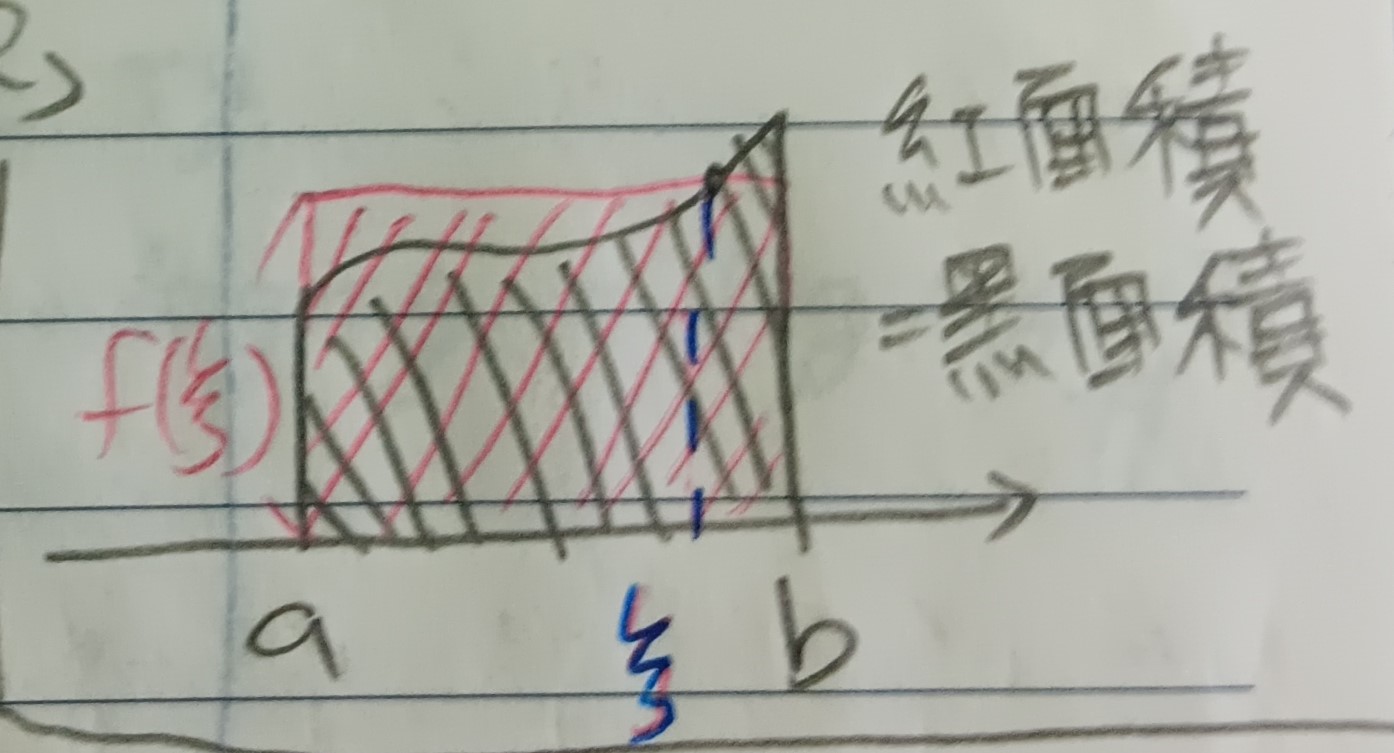 2>
紅面積
=黑面積
f(ξ)
a ξ b